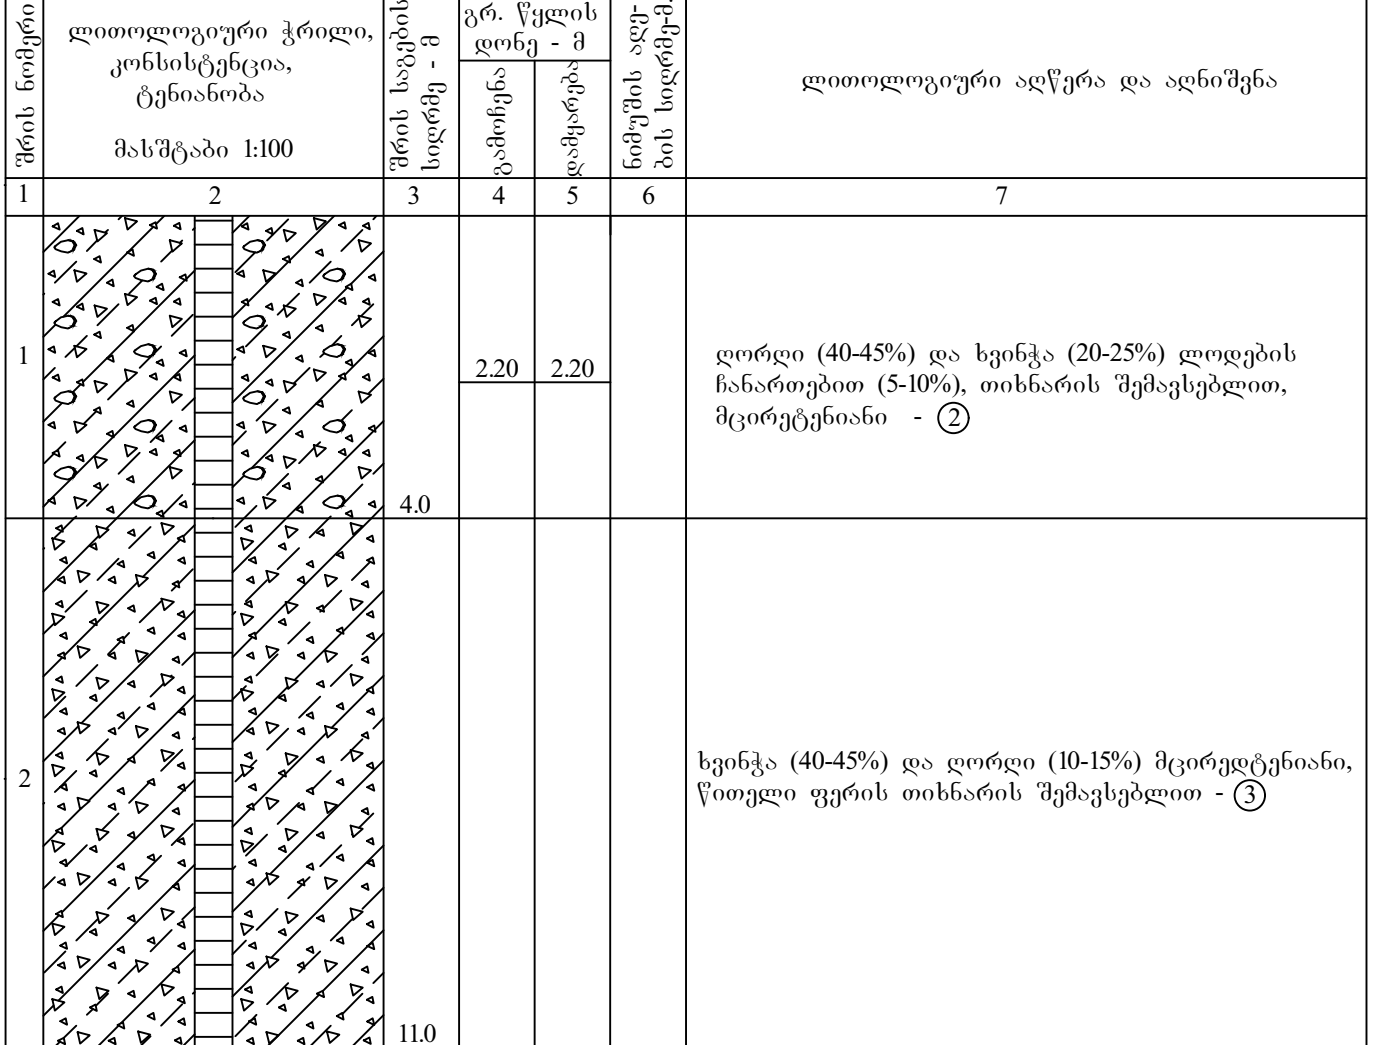 შრის ნომერი
ლითოლოგიური ჭრილი,
კონსისტენცია,
ტენიანობა
მასშტაბი 1:100
შრის საგების
სიღრმე - მ
გრ. წყლის
დონე - მ
გამოჩენა
დამყარება
ნიმუშის აღე-
ბის სიღრმე-მ.
ლითოლოგიური აღწერა და აღნიშვნა
1 2 3 4 5 6 7
1
2.20 2.20
ღორღი (40-45%) და ხვინჭა (20-25%) ლოდების
ჩანართებით (5-10%), თიხნარის შემავსებლით,
მცირეტენიანი - 2
4.0
2
ხვინჭა (40-45%) და ღორღი (10-15%) მცირედტენიანი,
წითელი ფერის თიხნარის შემავსებლით - 3
11.0